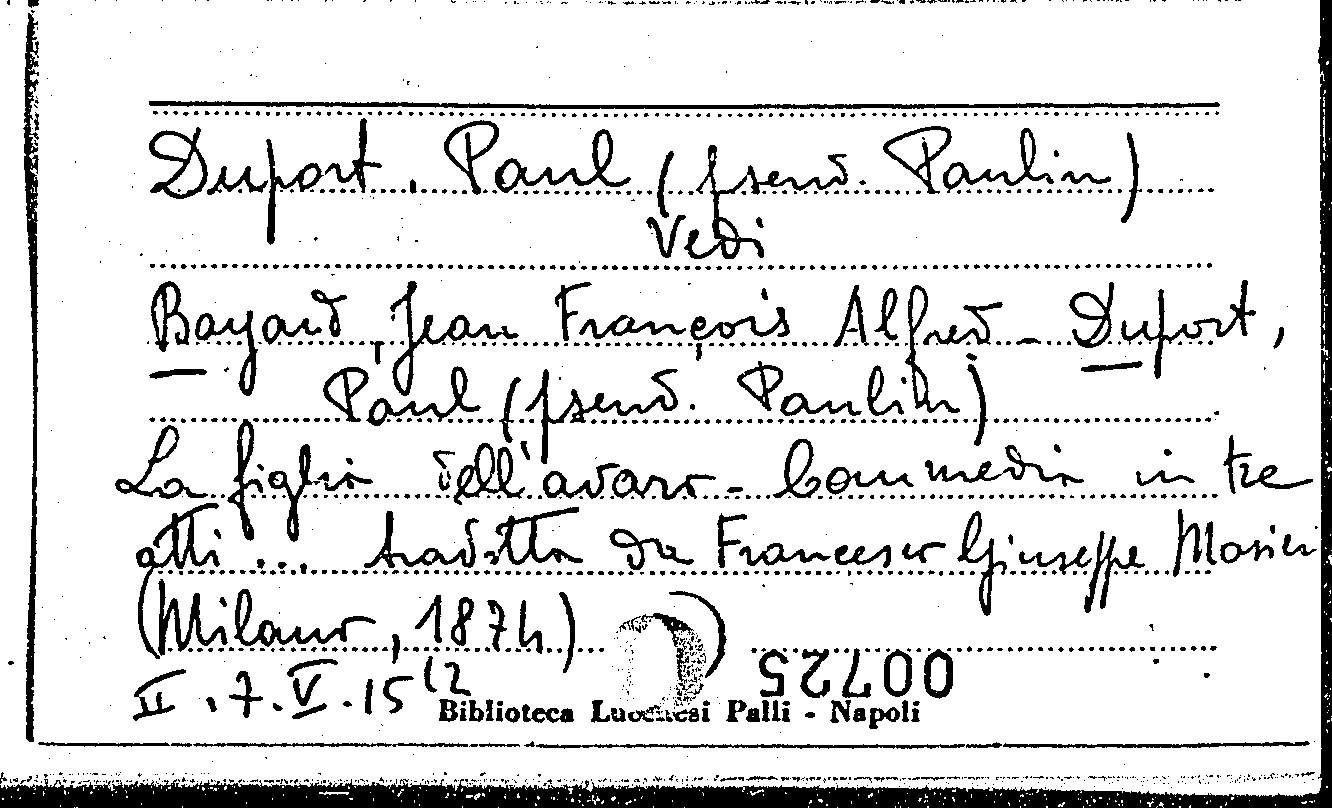 Duport, Paul (pseud. Paulin)
Vedi
Bayard, Jean François Alfred - Duport,
Paul (pseud. Paulin)
La figlia dell'avaro - Commedia in tre
atti ... tradotta da Francesco Giuseppe
(Milano, 1874)
II.7.V.15 (2
00725
Biblioteca Lucchesi Palli - Napoli